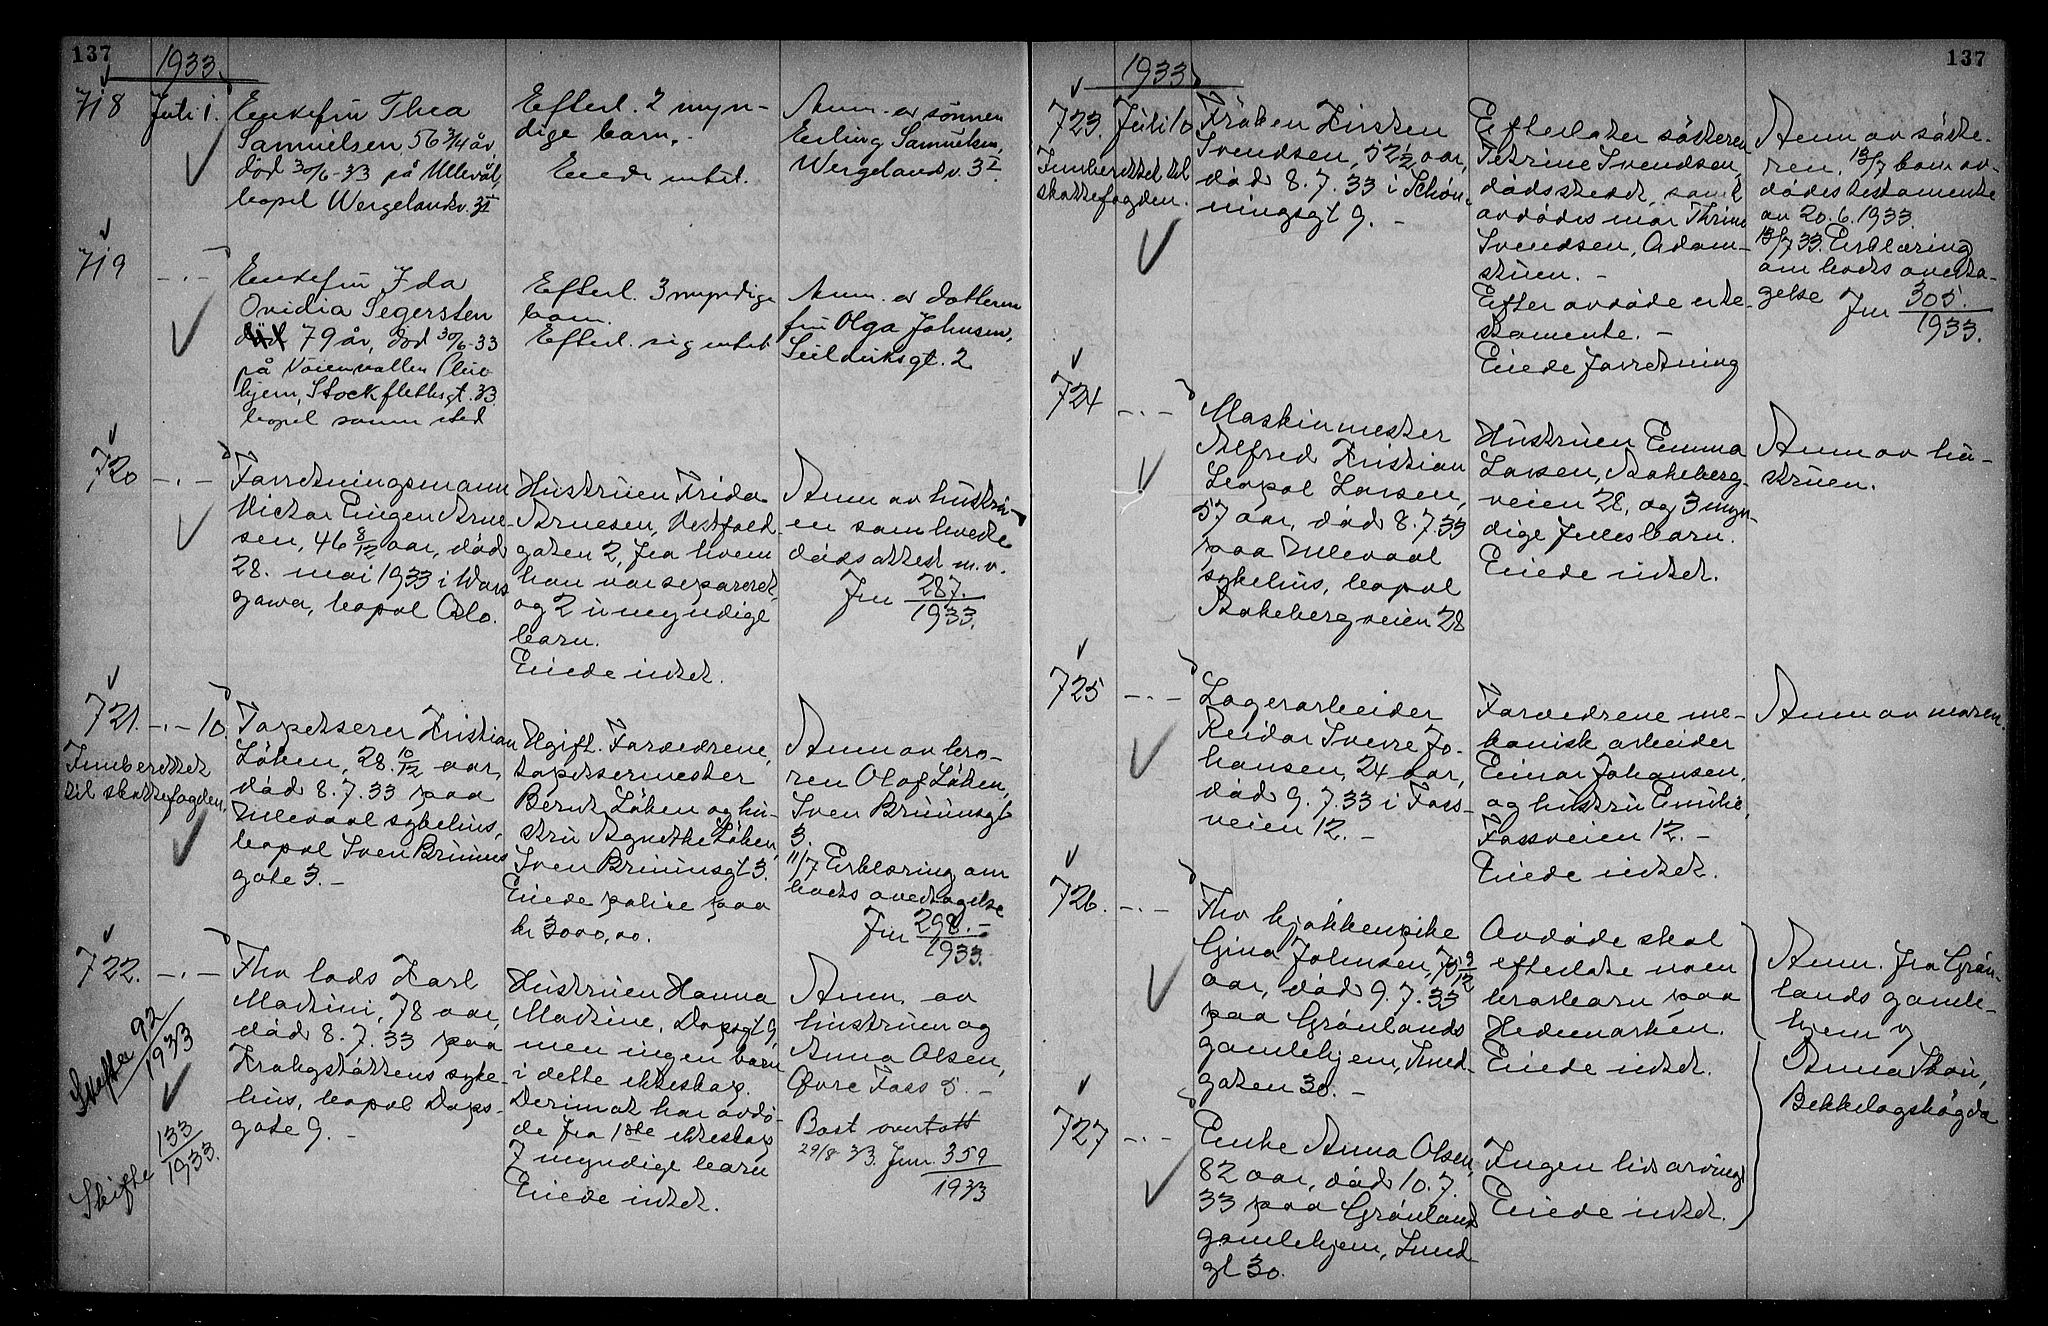 137
1933.
718
Juli 1.
Enkefru Thea
Samuelsen, 56 3/4 år,
død 30/6-33 på Ullevål,
bopel Wergelandsv. 3 II
Efterl. 2 myn-
dige barn.
Eiede intet.
Anm. av sønnen
Erling Samuelsen,
Wergelandsv. 3 II
719
-.-
Enkefru Ida
Ovidia Segersten
79 år, død 30/6-33
på Vøienvollen Pleie
hjem, Stockflethsgt. 33.
bopel samme sted
Efterl. 3 myndige
barn.
Efterl. sig intet
Anm. av datteren
fru Olga Johnsen,
Seilduksgt. 2
720
-.-
Forretningsmann
Victor Eugen Arne-
sen, 46 8/12 aar, død
28. mai 1933 i Wars
zawa, bopel Oslo.
Hustruen Frida
Arnesen, Vestfold-
gaten 2, fra hvem
han var separeret,
og 2 umyndige
barn.
Eiede intet.
Anm av hustru-
en som hvede
dødsattest m.v.
Jnr 287.
1933.
721.
-.- 10.
Innberettet
til skattefogden.
Tapetserer Kristian
Løken, 28 10/12 aar,
død 8.7.33 paa
Ullevaal sykehus,
bopel Sven Bruuns
gate 3. -
Ugift. Forældrene,
tapetsermester
Bernt Løken og hu-
stru Agnethe Løken,
Sven Bruunsgt 3.
Eiede police paa
kr 3000,00.
Anm av bro-
ren Olaf Løken,
Sven Bruunsgt
3.
11/7 Erklæring om
boets overtagelse
Jnr 298.-
1933.
722.
-.-
Skifte 92
1933
Skifte 133
1933.
Fhv lods Karl
Martini, 78 aar,
død 8.7.33 paa
Krohgstøttens syke-
hus, bopel Dops-
gate 9. -
Hustruen Hanna
Martine, Dopsgt 9,
men ingen barn
i dette ekteskap.
Derimot har avdø-
de fra 1ste ekteskap
7 myndige barn
Eiede intet.
Anm. av
hustruen og
Anna Olsen,
Øvre Foss 5. -
Boet overtatt
29/8 33. Jnr. 359
1933
137
1933.
723.
Juli 10
Innberettet til
skattefogden.
Frøken Kirsten
Svendsen, 52 1/2 aar,
død 8.7.33 i Schøn-
ningsgt 9. -
Efterlater søsteren
Petrine Svendsen,
dødsstedet, samt
avdødes mor Thrine
Svendsen, Adam-
stuen. -
Efter avdøde er te-
stamente. -
Eiede forretning
Anm av søste-
ren. 13/7 kom av-
dødes testamente
av 20.6.1933.
13/7 33. Erklæring
om boets overta-
gelse Jnr 305.
1933.
724
-.-
Maskinmester
Alfred Kristian
Leopol Larsen,
57 aar, død 8.7.33
paa Ullevaal
sykehus, bopel
Bakebergveien 28
Hustruen Emma
Larsen, Bakeberg-
veien 28, og 3 myn-
dige fellesbarn.
Eiede intet.
Anm av hu-
struen.
725
-.-
Lagerarbeider
Reidar Sverre Jo-
hansen, 24 aar,
død 9.7.33 i Foss-
veien 12. -
Forældrene me-
kanisk arbeider
Einar Johansen,
og hustru Emilie,
Fossveien 12. -
Eiede intet.
Anm av moren.
726.
-.-
Fhv kjøkkenpike
Gina Johnsen, 75 9/12
aar, død 9.7.33
paa Grønlands
gamlehjem, Smed-
gaten 30. -
Avdøde skal
efterlate noen
brorbarn paa
Hedemarken.
Eiede intet.
Anm. fra Grøn-
lands gamle-
hjem v
Anna Skou,
Bekkelagshøgda
727
-.-
Enke Anna Olsen,
82 aar, død 10.7.
33 paa Grønlands
gamlehjem, Smed
gt 30.
Ingen livsarvinger
Eiede intet.